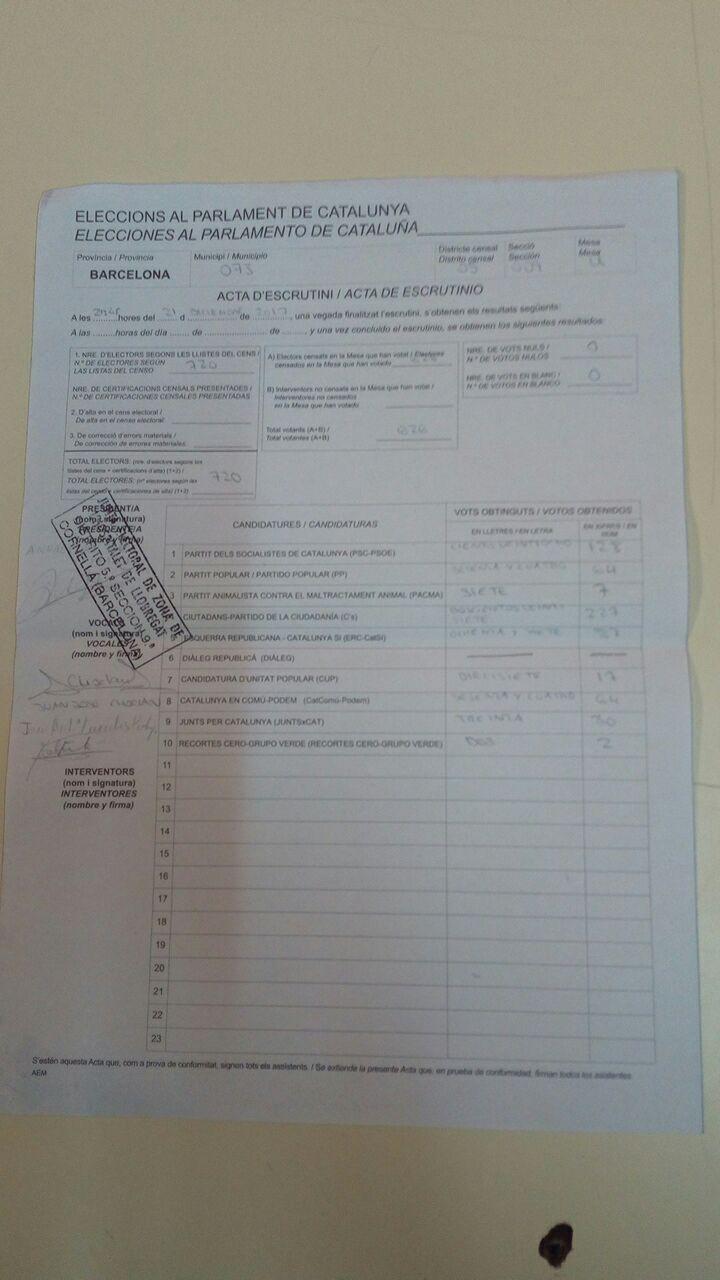 ELECCIONS AL PARLAMENT DE CATALUNYA
ELECCIONES AL PARLAMENTO DE CATALUÑA
Província / Provincia
BARCELONA
Municipi / Municipio
073
Districte censal
Distrito censal
05
Secció
Sección
009
Mesa
Mesa
U
ACTA D'ESCRUTINI / ACTA DE ESCRUTINIO
A les ......... hores del 21 d DICIEMBRE de 2017, una vegada finalitzat l'escrutini, s'obtenen els resultats següents:
A las ......... horas del día ....... de ........................ de ........, y una vez concluido el escrutinio, se obtienen los siguientes resultados:
1. NRE. D'ELECTORS SEGONS LES LLISTES DEL CENS /
N.º DE ELECTORES SEGÚN
LAS LISTAS DEL CENSO 720
NRE. DE CERTIFICACIONS CENSALS PRESENTADES /
N.º DE CERTIFICACIONES CENSALES PRESENTADAS
2. D'alta en el cens electoral /
De alta en el censo electoral:
3. De correcció d'errors materials /
De corrección de errores materiales:
TOTAL ELECTORS: (nre. d'electors segons les
llistes del cens + certificacions d'alta) (1+2) /
TOTAL ELECTORES: (nº electores según las
listas del censo + certificaciones de alta) (1+2) 720
A) Electors censats en la Mesa que han votat / Electores
censados en la Mesa que han votado
B) Interventors no censats en la Mesa que han votat /
Interventores no censados
en la Mesa que han votado
Total votants (A+B) /
Total votantes (A+B) 626
NRE. DE VOTS NULS /
N.º DE VOTOS NULOS 0
NRE. DE VOTS EN BLANC /
N.º DE VOTOS EN BLANCO 0
PRESIDENT/A
(nom i signatura)
PRESIDENTE/A
JUNTA ELECTORAL DE ZONA DE
L'HOSPITALET DE LLOBREGAT
DISTRITO 5.º SECCION 9.ª
CORNELLA (BARCELONA)
VOCALS
(nom i signatura)
VOCALES
(nombre y firma)
INTERVENTORS
(nom i signatura)
INTERVENTORES
(nombre y firma)
CANDIDATURES / CANDIDATURAS
VOTS OBTINGUTS / VOTOS OBTENIDOS
EN LLETRES / EN LETRA
1 PARTIT DELS SOCIALISTES DE CATALUNYA (PSC-PSOE) CIENTO VEINTIOCHO 128
2 PARTIT POPULAR / PARTIDO POPULAR (PP) SESENTA Y CUATRO 64
3 PARTIT ANIMALISTA CONTRA EL MALTRACTAMENT ANIMAL (PACMA) SIETE 7
CIUTADANS-PARTIDO DE LA CIUDADANÍA (C's) DOSCIENTOS VEINTISIETE 227
5 ESQUERRA REPUBLICANA - CATALUNYA SÍ (ERC-CatSí) OCHENTA Y SIETE 87
6 DIÀLEG REPUBLICÀ (DIÀLEG)
7 CANDIDATURA D'UNITAT POPULAR (CUP) DIECISIETE 17
8 CATALUNYA EN COMÚ-PODEM (CatComú-Podem) SESENTA Y CUATRO 64
9 JUNTS PER CATALUNYA (JUNTSxCAT) TREINTA 30
10 RECORTES CERO-GRUPO VERDE (RECORTES CERO-GRUPO VERDE) DOS 2
11
12
13
14
15
16
17
18
19
20
21
22
23
S'estén aquesta Acta que, com a prova de conformitat, signen tots els assistents. / Se extiende la presente Acta que, en prueba de conformidad, firman todos los asistentes.
AEM